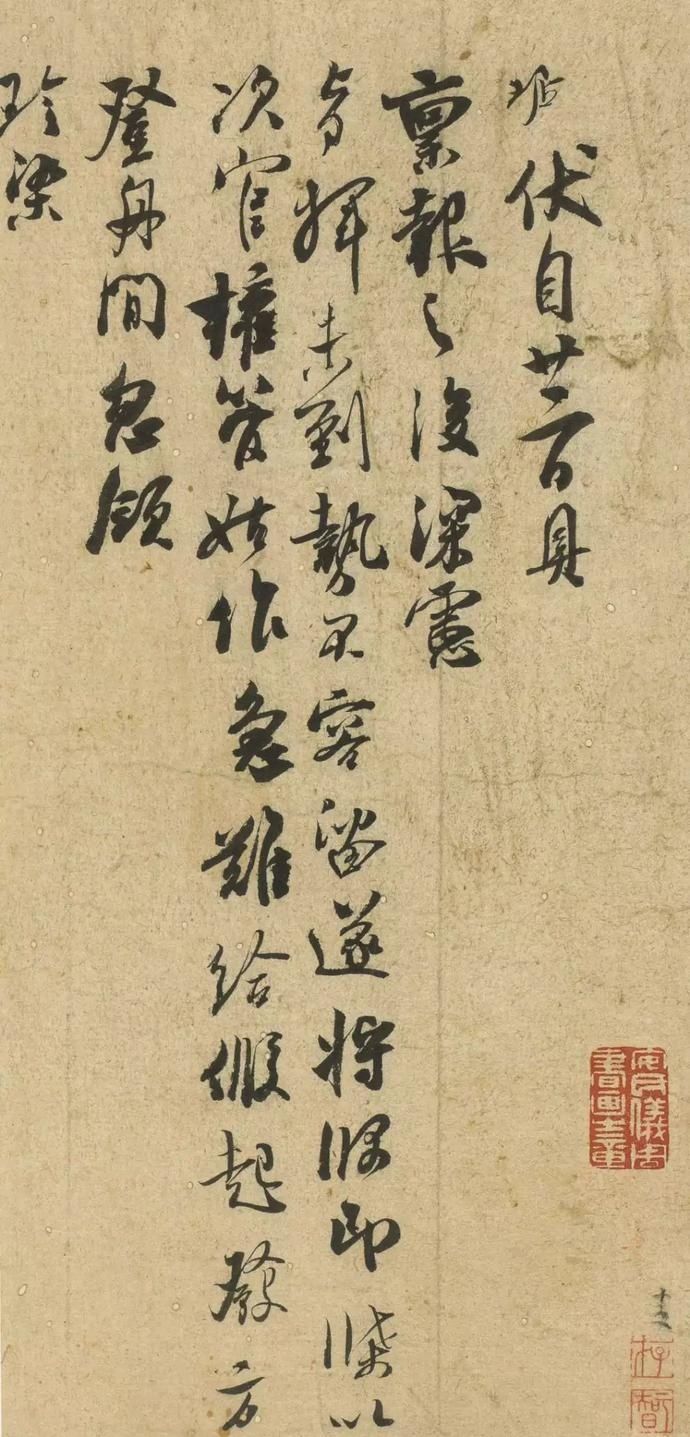 玷伏自廿二日具
稟報之後深慮
旨揮未到勢不容留遂將牌印牒以
次官權管姑作急難給假起發方
登舟間忽領
珍染
安儀周
書畫之章